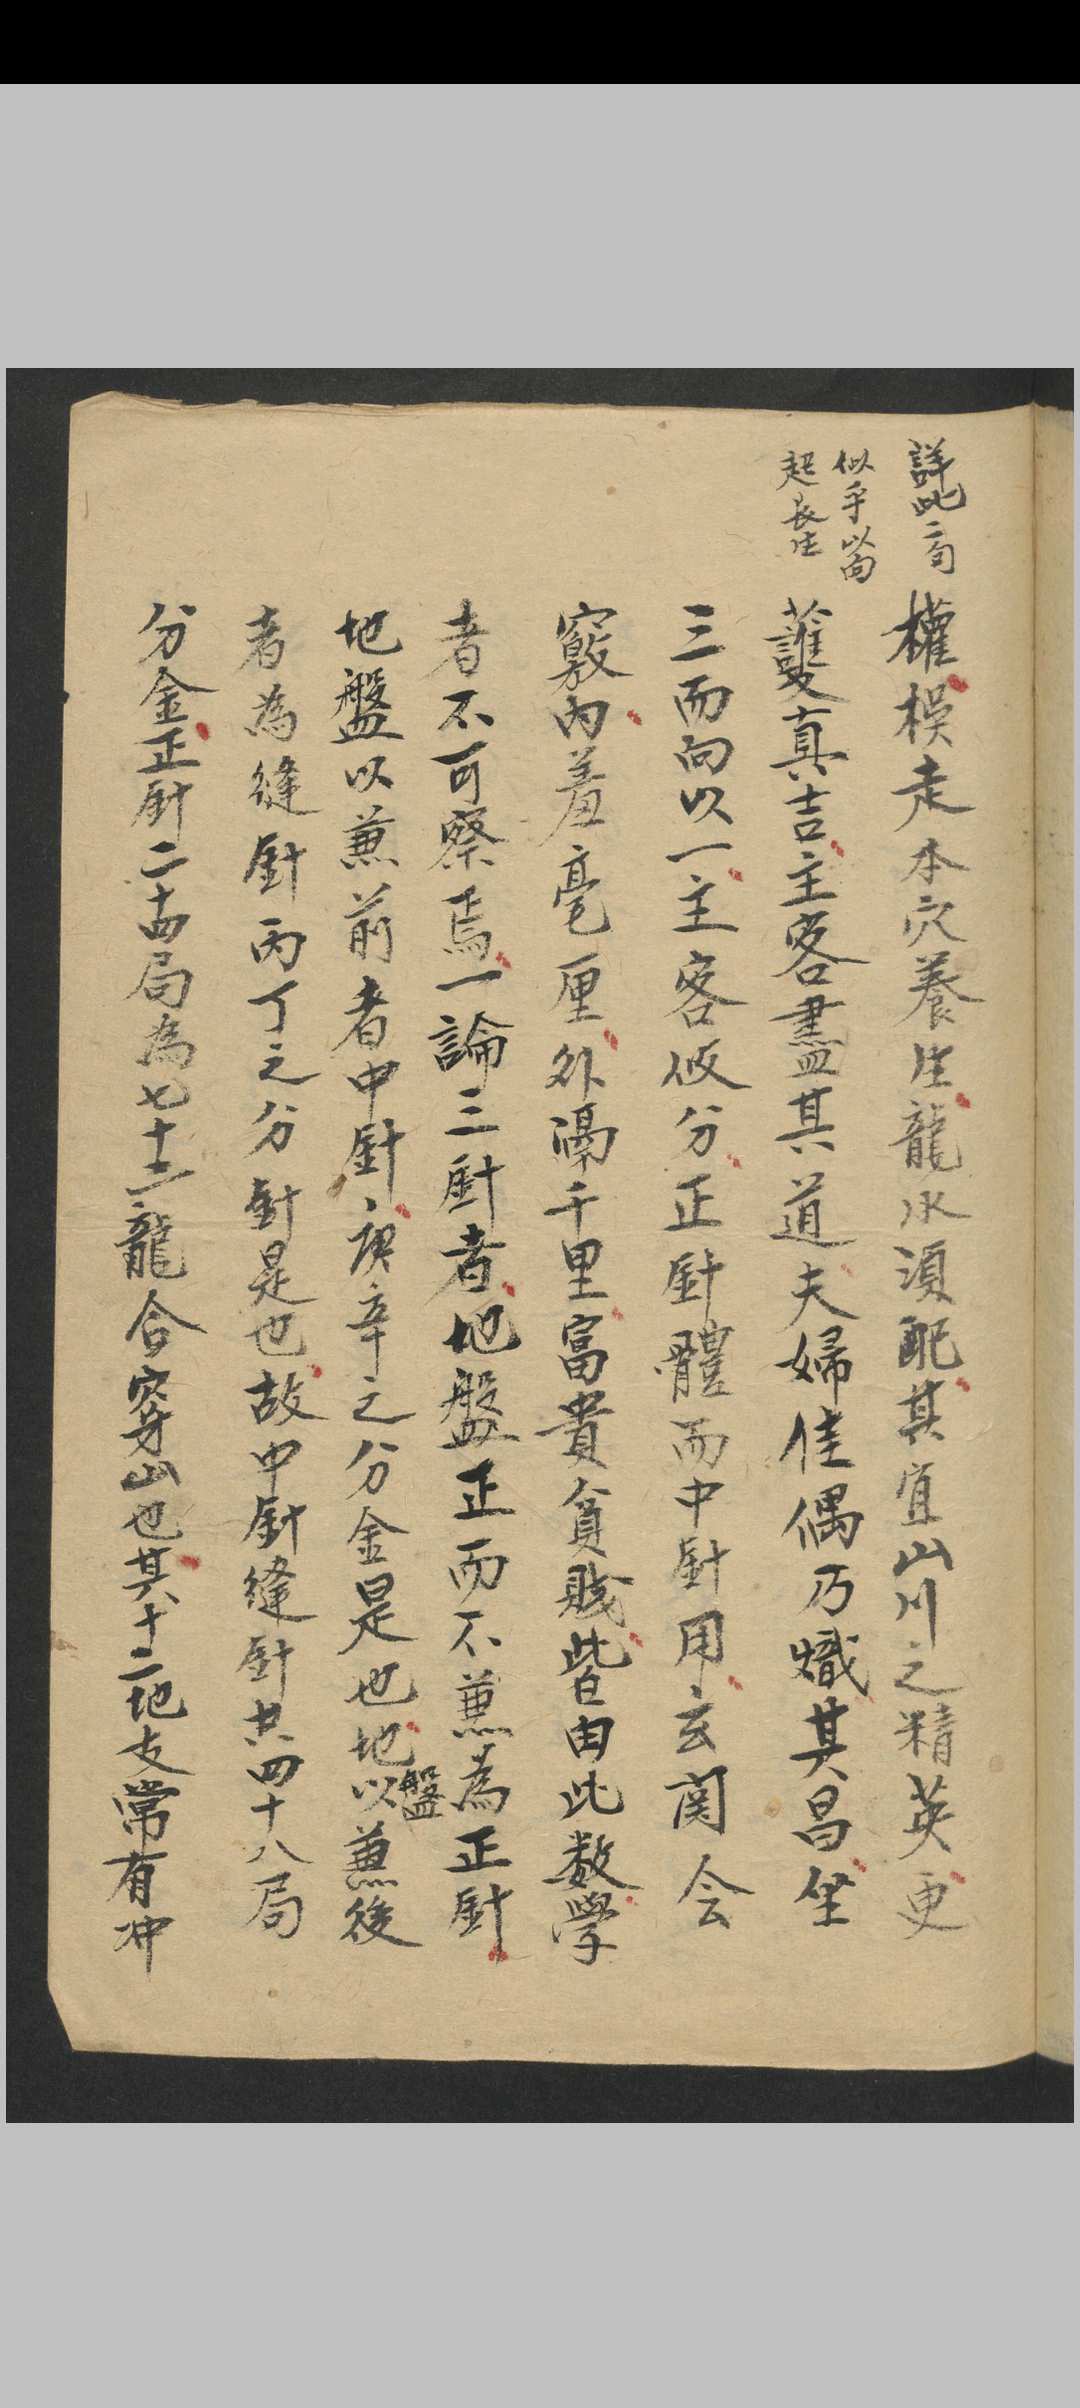 詳此二句
似乎以向
起長生
權模走本穴養生龍水須配其宜山川之精英更
護真吉主客盡其道夫婦佳偶乃熾其昌坐
三而向以一主客攸分正針體而中針用玄関会
竅内羞毫厘外隔千里富貴貧賤皆由此数學
者不可察焉一論三針者地盤正而不兼為正針
地盤以兼前者中針庚辛之分金是也地盤以兼後
者為縫針丙丁之分針是也故中針縫針共四十八局
分金正針二十四局為七十二龍合穿山也其十二地支常有冲